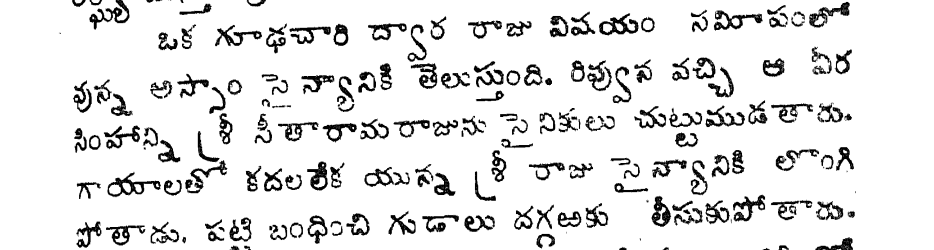 ఒక గూఢచారి ద్వార రాజు విషయం సమీపంలో
వున్న అస్సాం సైన్యానికి తెలుస్తుంది. రివ్వున వచ్చి ఆ వీర
సింహాన్ని శ్రీ సీతారామరాజును సైనికులు చుట్టుముడతారు.
గాయాలతో కదలలేక యున్న శ్రీ రాజు సైన్యానికి లొంగి
పోతాడు. పట్టి బంధించి గుడాలు దగ్గఱకు తీసుకుపోతారు.